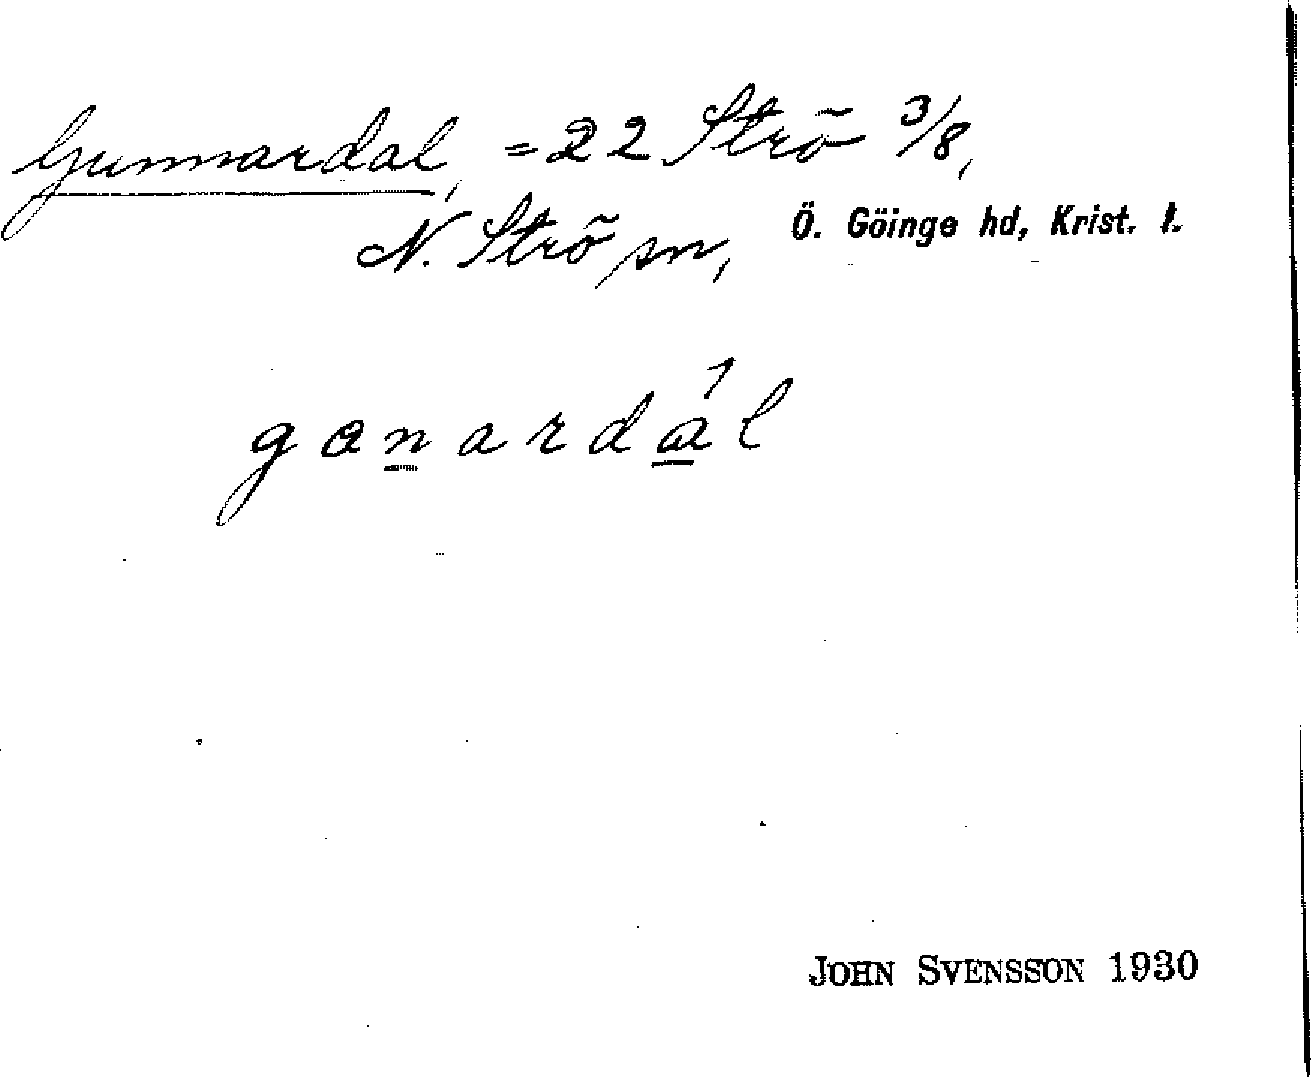 Gunnardal, = 22 Strö 3/8,
N. Strö sn, Ö. Göinge hd, Krist. l.
JOHN SVENSSON 1930